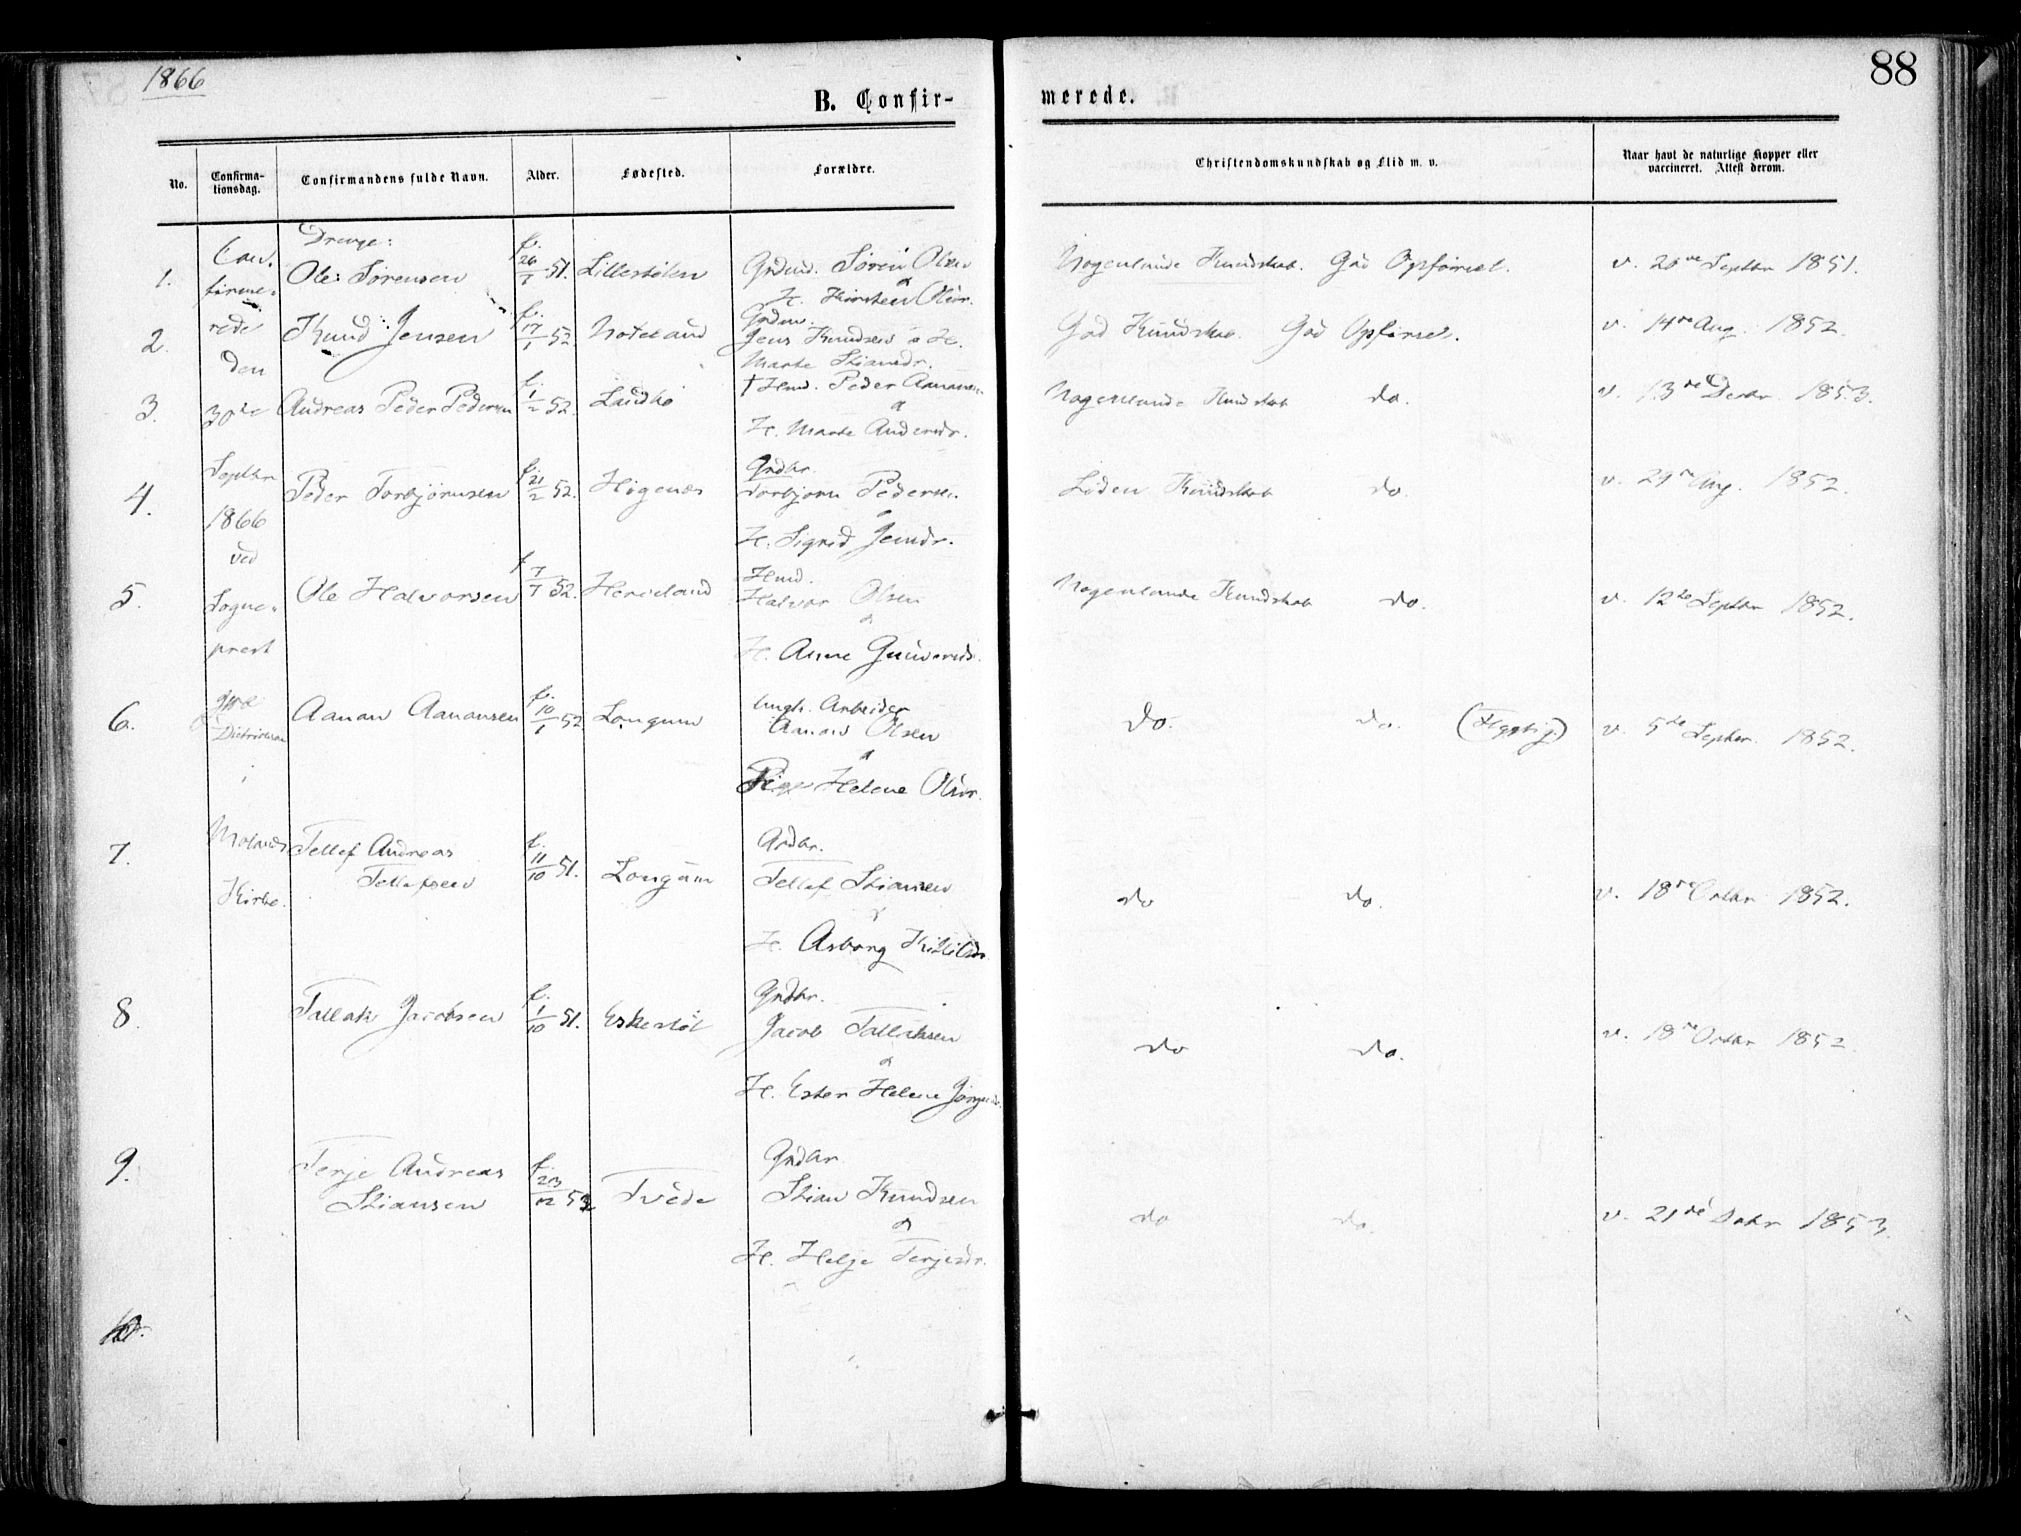 1866
88
B. Confir-
merede.
No.
Confirma-
tionsdag.
Confirmandens fulde Navn.
Alder.
Fødested.
Forældre.
Christendomskundskab og Flid m. v.
Naar havt de naturlige Kopper eller
vaccineret. Attest derom.
Con-
firme-
rede
den
30te
Septbr
1866
ved
Sogne-
prest
i
Molands
Kirke.
Drenge:
1. Ole Sørensen f. 26/7 51. Lillestølen Grdmd. Søren Olsen
& H. Kirsten Olsdr.
Nogenlunde Kundskab. God Opførsel. v. 20de Septbr 1851.
2. Knud Jensen f. 17/1 52 Noteland Grdm.
Jens Knudsen & H.
Marte Stiansdr.
God Kundskab. God Opførsel. v. 14de Aug. 1852.
3. Andreas Peder Pedersen f. 1/2 52. † Hmd. Peder
&
H. Marte Andersdr.
Nogenlunde Kundskab do. v. 13de Decbr. 1853.
4. Peder Torbjørnsen f. 21/2 52. Høgenes Grdbr.
Torbjørn Pedersen
&
H. Sigrid Jensdr.
Liden Kundskab do. v. 29de Aug. 1852.
5. Ole Halvorsen f. 7/7 52. Hereland Hmd.
Halvor Olsen
&
H. Anne
Nogenlunde Kundskab do. v. 12te Septbr 1852.
6. Aanon Aanonsen f. 10/1 52 Longum Ungk. Arbeider
Aanon Olsen
&
Pige Helene Olsdr.
do. do. v. 5te Septbr. 1852.
7. Tellef Andreas
Tellefsen
f. 11/10 51. Longum Grdbr.
Tellef Stiansen
&
H. Asborg Kittilsdr.
do do. v. 18de Octbr 1852.
8. Tallak Jacobsen f. 1/10 51. Eskestøl Grdbr.
Jacob Tallaksen
&
H. Ester Helene
do do. v. 18de Octbr 1852.
9. Terje Andreas
Stiansen
f. 23/12 52 Tvede Grdbr
Stian Knudsen
&
H. Helje Terjesdr.
do do. v. 21de 1853.
10.